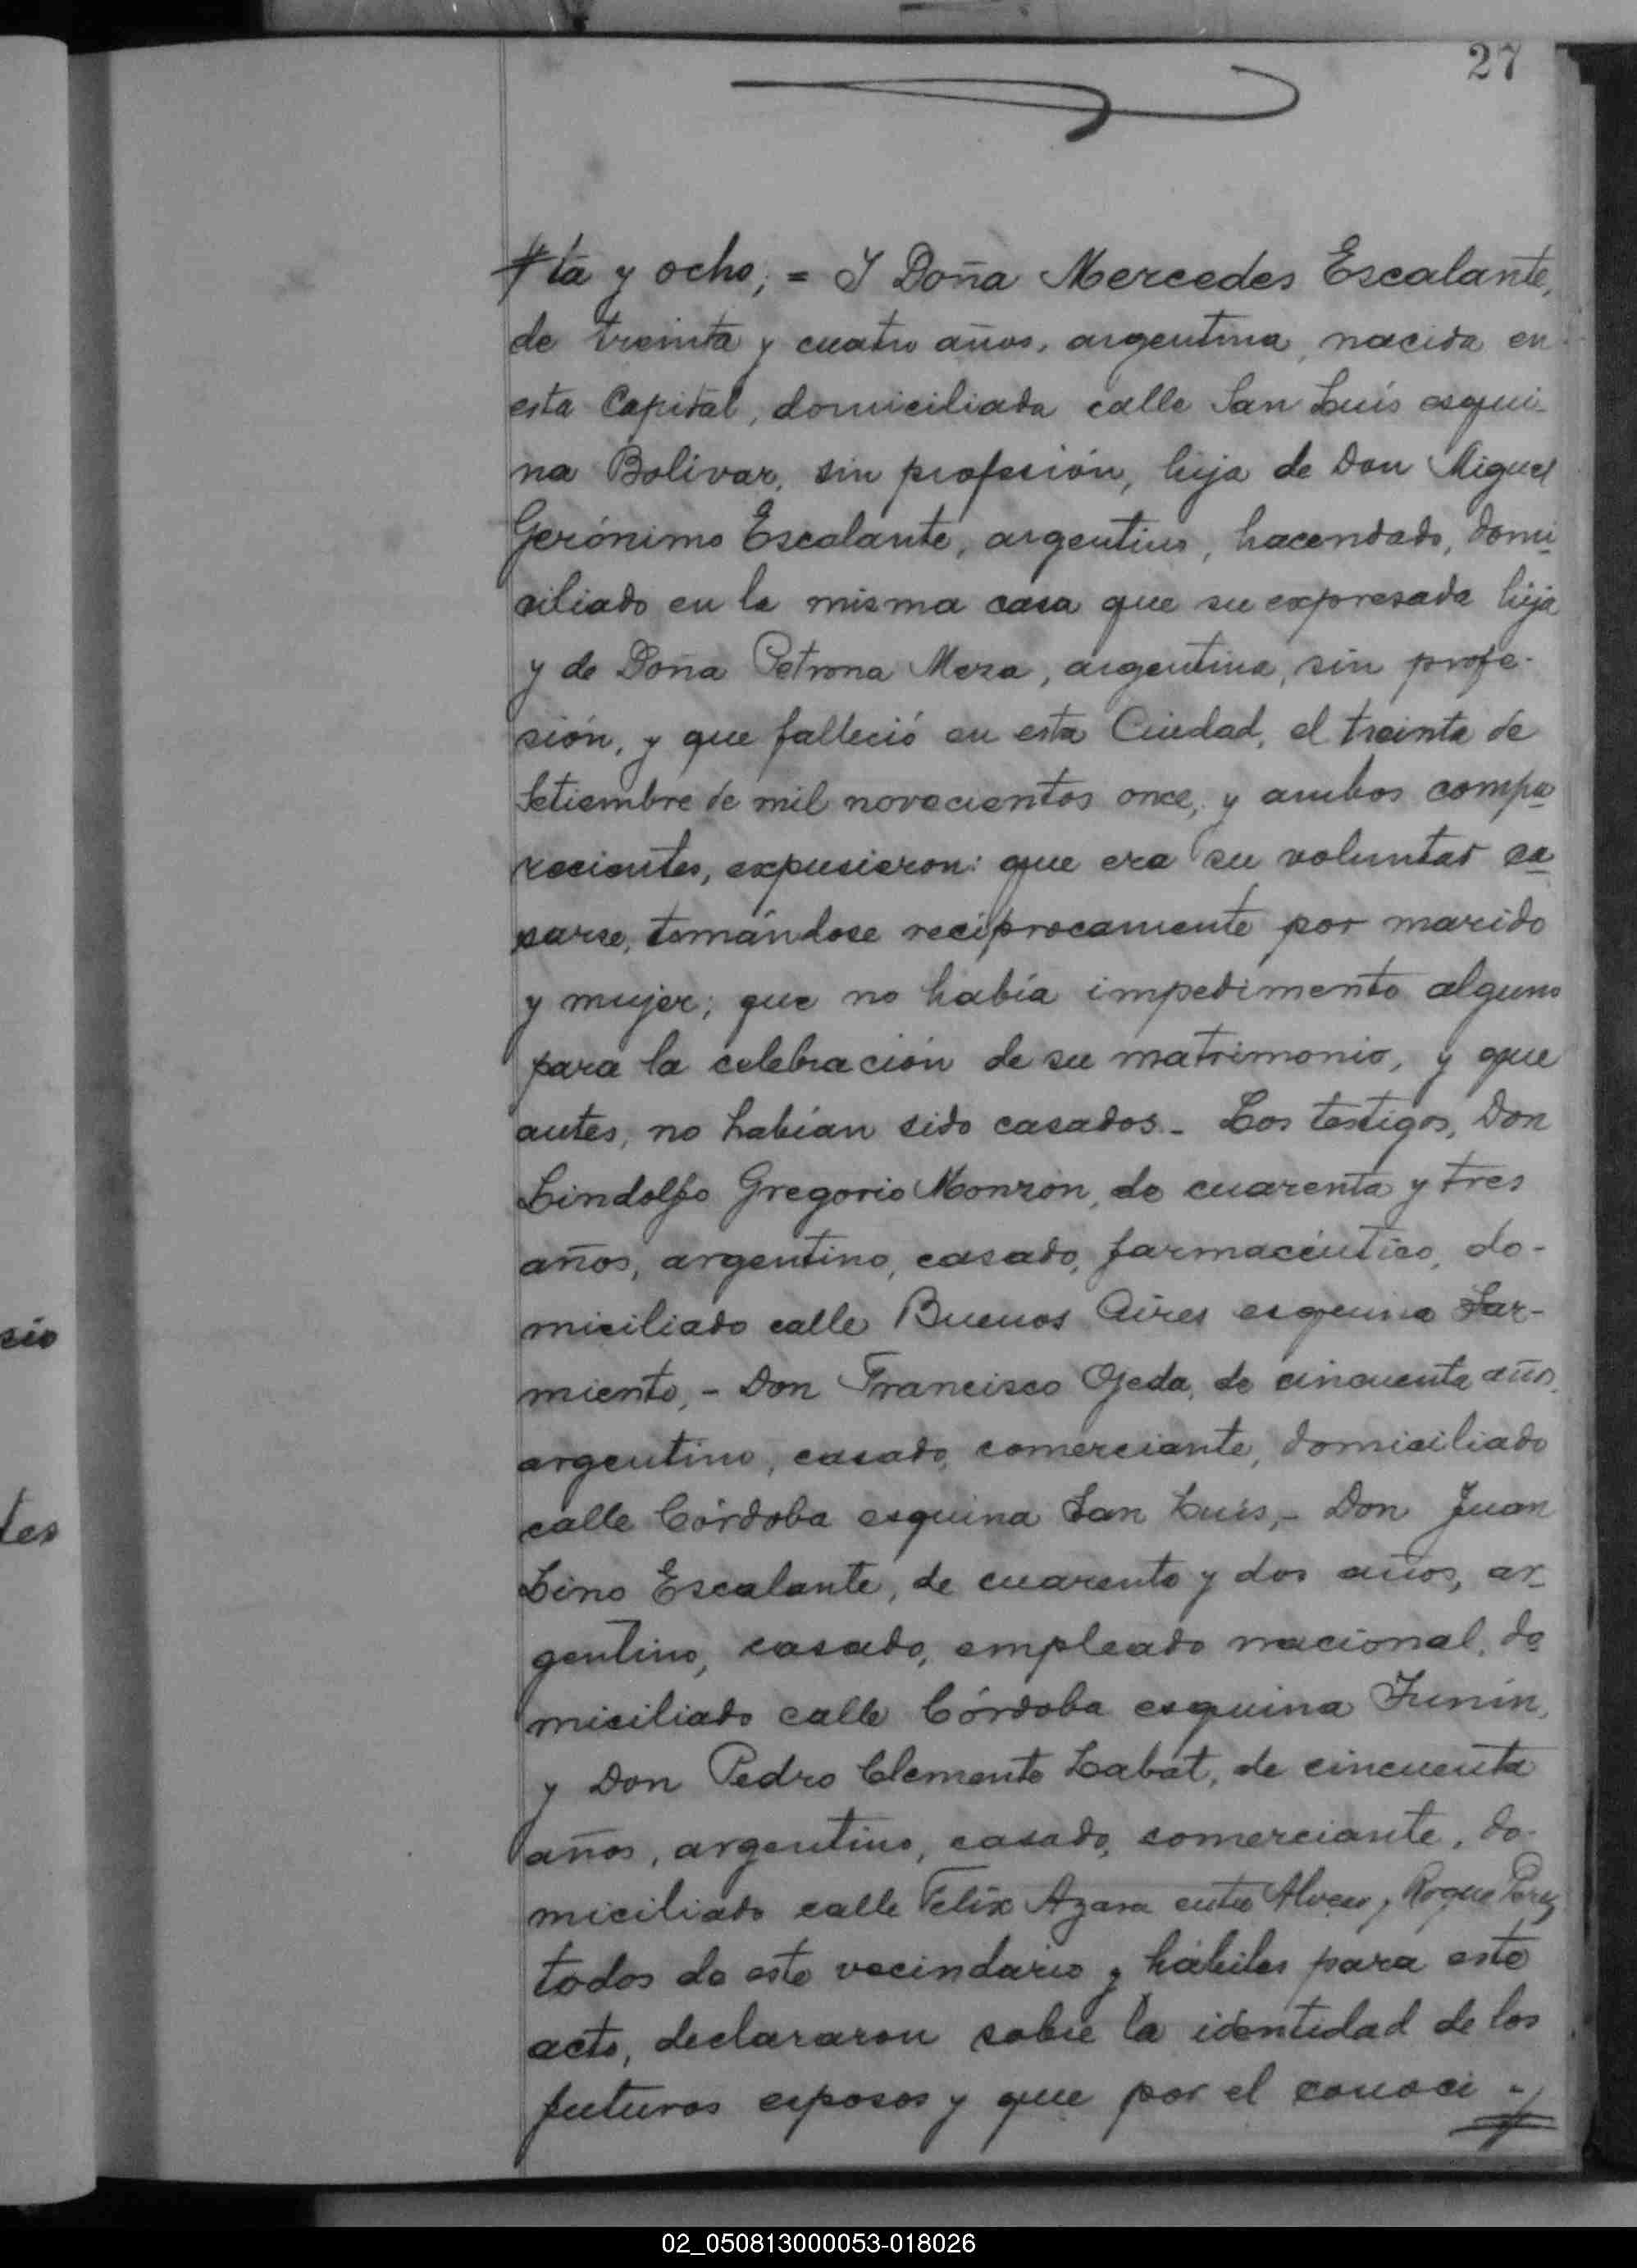 27
ta y ocho; = Y Doña Mercedes Escalante,
de treinta y cuatro años, argentina, nacida en
esta Capital, domiciliada calle San Luis esqui-
na Bolívar, sin profesión, hija de Don Miguel
Gerónimo Escalante, argentino, hacendado, domi
ciliado en la misma casa que su expresada hija
y de Doña Petrona Meza, argentina, sin profe-
sión, y que falleció en esta Ciudad, el treinta de
Setiembre de mil novecientos once, y ambos compa
recientes, expusieron: que era su voluntad ca
sarse, tomándose recíprocamente por marido
y mujer; que no había impedimento alguno
para la celebración de su matrimonio, y que
antes, no habían sido casados. - Los testigos, Don
Lindolfo Gregorio Monzón, de cuarenta y tres
años, argentino, casado, farmacéutico, do-
miciliado calle Buenos Aires esquina Sar-
miento, - Don Francisco Ojeda, de cincuenta años,
argentino, casado, comerciante, domiciliado
calle Córdoba esquina San Luis, - Don Juan
Lino Escalante, de cuarenta y dos años, ar-
gentino, casado, empleado nacional, do
miciliado calle Córdoba esquina Junín,
y Don Pedro Clemente Labat, de cincuenta
años, argentino, casado, comerciante, do-
miciliado calle Felix Azara entre y Roque Perez
todos de este vecindario y hábiles para este
acto, declararon sobre la identidad de los
futuros esposos y que por el conoci -
sio
tes
02_050813000053-018026